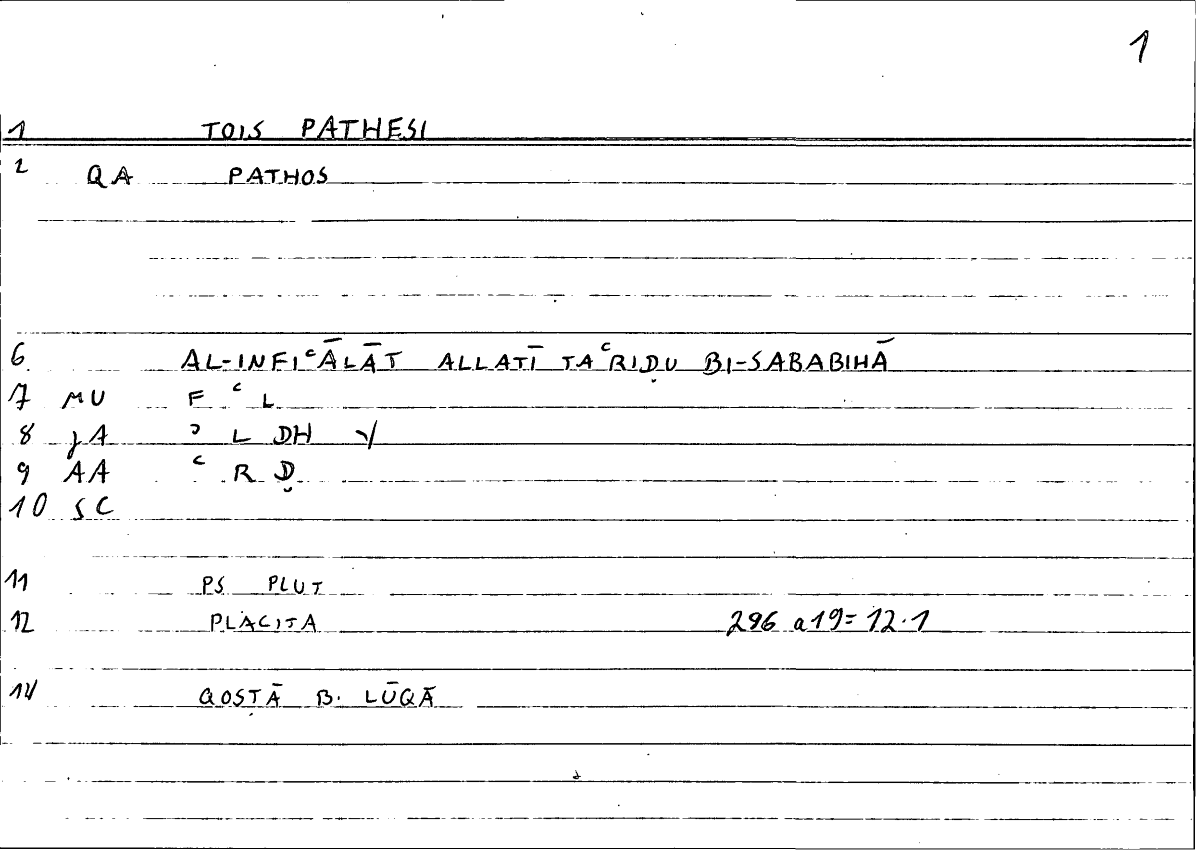 1
1 TOIS PATHESI
2 QA PATHOS
6 AL-INFIʿĀLĀT ALLATĪ TAʿRIḌU BI-SABABIHĀ
7 MU F ʿ L
8 JA ʾ L DH √
9 AA ʿ R Ḍ
10 SC
11 PS PLUT
12 PLACITA 296 a19=12.1
14 QOSṬĀ B. LŪQĀ